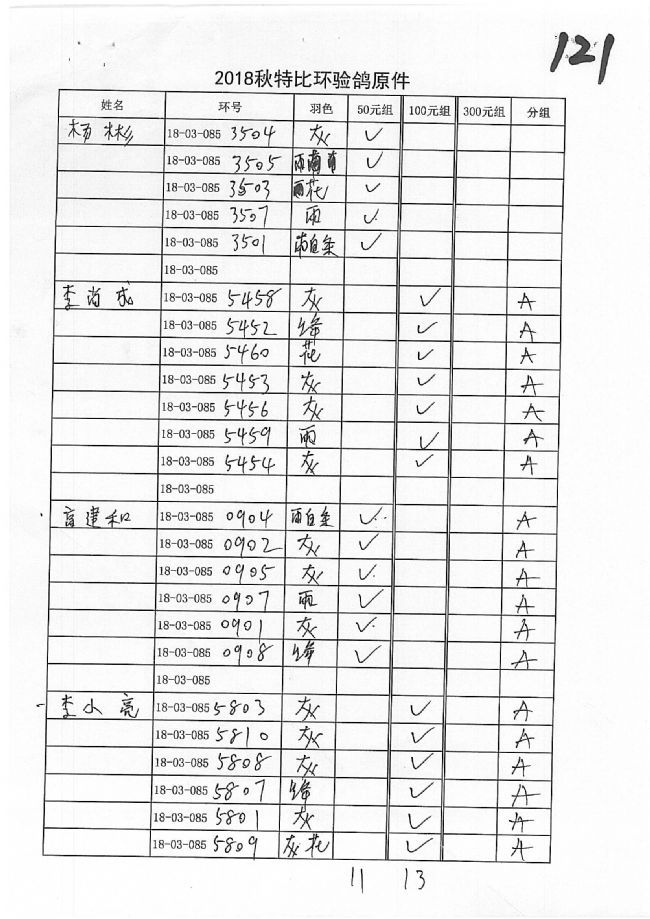 121
2018秋特比环验鸽原件
姓名 环号 羽色 50元组 100元组 300元组 分组
杨彬 18-03-085 3504 灰 ✓
18-03-085 3505 雨 ✓
18-03-085 3503 雨花 ✓
18-03-085 3507 雨 ✓
18-03-085 3501 雨白条 ✓
18-03-085
李尚成 18-03-085 5458 灰 ✓ A
18-03-085 5452 绛 ✓ A
18-03-085 5460 花 ✓ A
18-03-085 5453 灰 ✓ A
18-03-085 5456 灰 ✓ A
18-03-085 5459 雨 ✓ A
18-03-085 5454 灰 ✓ A
18-03-085
建和 18-03-085 0904 雨白条 ✓ A
18-03-085 0902 灰 ✓ A
18-03-085 0905 灰 ✓ A
18-03-085 0907 雨 ✓ A
18-03-085 0901 灰 ✓ A
18-03-085 0908 绛 ✓ A
18-03-085
李小亮 18-03-085 5803 灰 ✓ A
18-03-085 5810 灰 ✓ A
18-03-085 5808 灰 ✓ A
18-03-085 5807 绛 ✓ A
18-03-085 5801 灰 ✓ A
18-03-085 5809 灰花 ✓ A
11 13